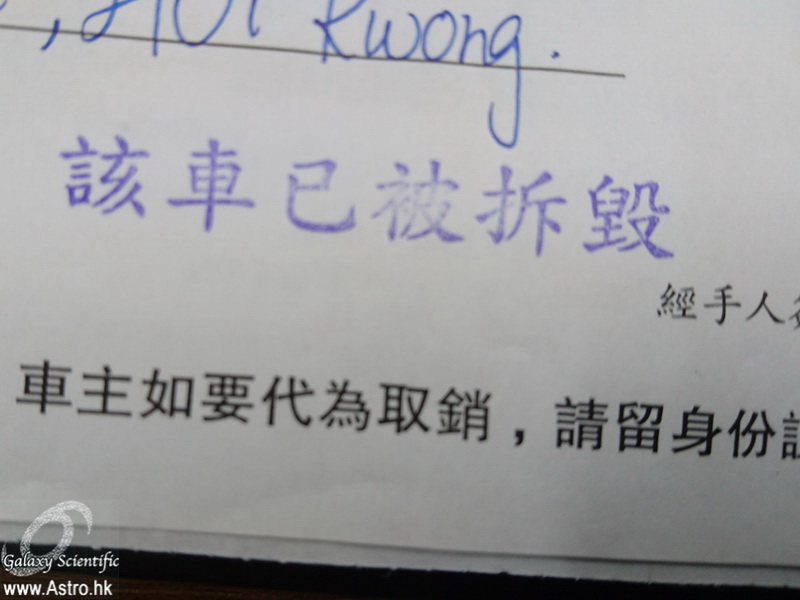 Kwong.
該車已被拆毀
經手人
車主如要代為取銷，請留身份
Galaxy Scientific
www.Astro.hk